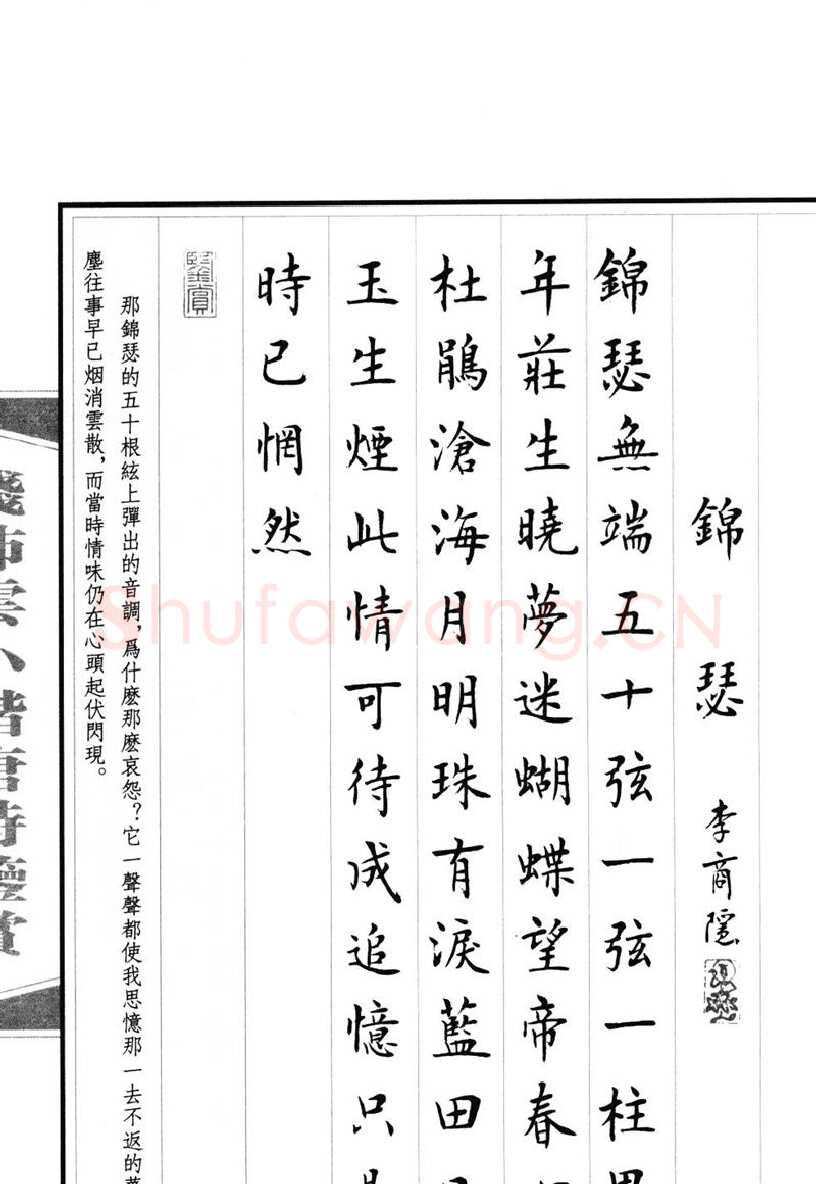 錦瑟
李商隱
錦瑟無端五十弦一弦一柱
年莊生曉夢迷蝴蝶望帝春
杜鵑滄海月明珠有淚藍田
玉生煙此情可待成追憶只
時已惘然
鑒賞
那錦瑟的五十根絃上彈出的音調，爲什麽那麽哀怨？它一聲聲都使我思憶那一去不返的
塵往事早已烟消雲散，而當時情味仍在心頭起伏閃現。
Shufawang.CN